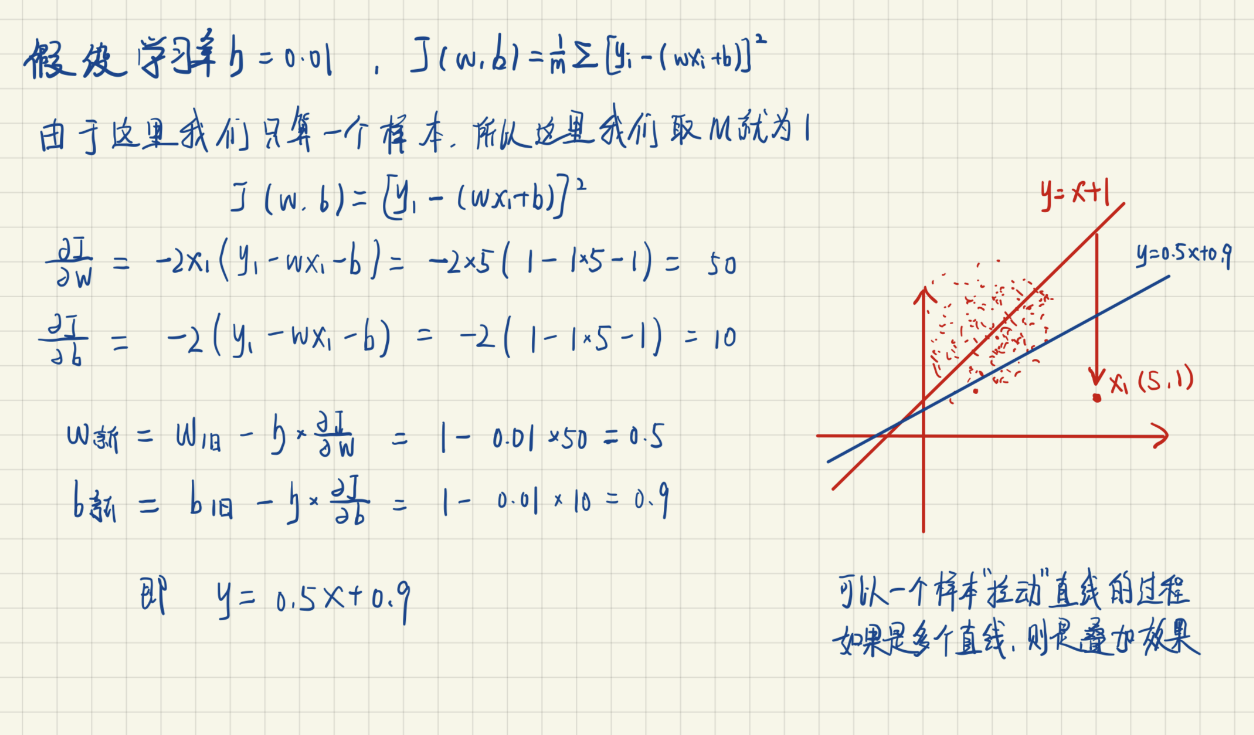 假设学习率η = 0.01 , J(w,b) = 1/m Σ [yᵢ - (wxᵢ+b)]²
由于这里我们只算一个样本, 所以这里我们取M就为1
J(w, b) = [y₁ - (wx₁+b)]²
∂J/∂w = -2x₁(y₁ - wx₁ - b) = -2×5( 1 - 1×5 - 1) = 50
∂J/∂b = -2(y₁ - wx₁ - b) = -2( 1 - 1×5 - 1) = 10
w新 = w旧 - η × ∂J/∂w = 1 - 0.01 × 50 = 0.5
b新 = b旧 - η × ∂J/∂b = 1 - 0.01 × 10 = 0.9
即 y = 0.5x+0.9
y = x+1
y=0.5x+0.9
x₁(5,1)
可以一个样本"拉动"直线的过程
如果是多个直线, 则是叠加效果